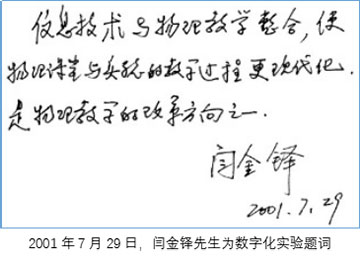 信息技术与物理教学整合，使
物理课堂与实验的教学过程更现代化．
是物理教学的改革方向之一．
闫金铎
2001.7.29
2001年7月29日，闫金铎先生为数字化实验题词